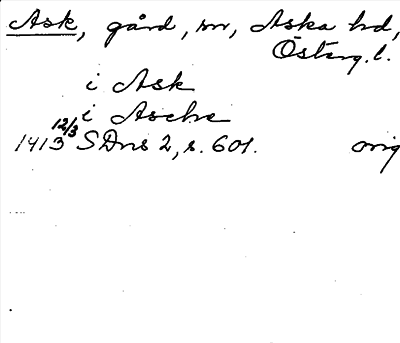 Ask, gård, sn, Aska hd,
Österg. l.
i Ask
i Asche
1413 12/3 SDns 2, s. 601. orig